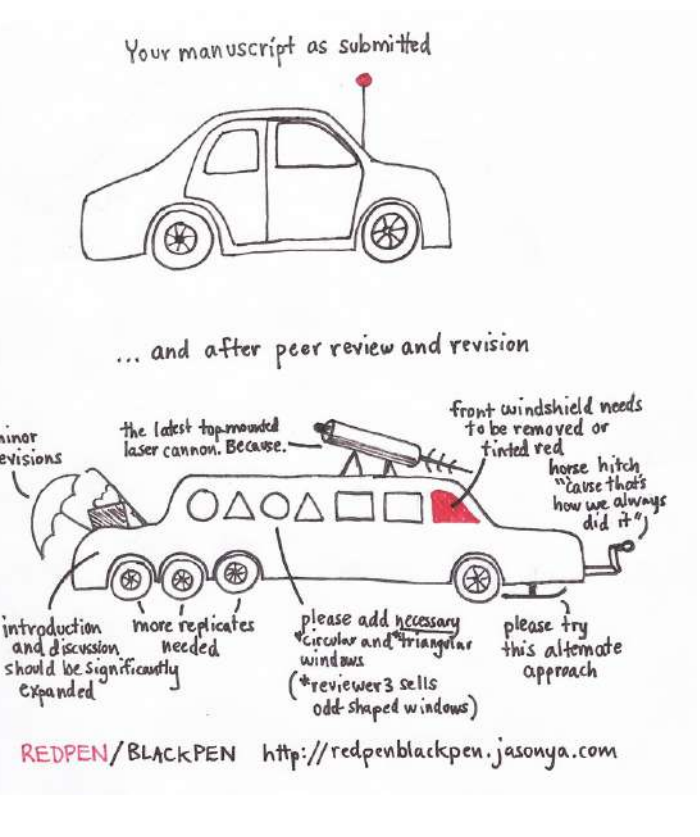 Your manuscript as submitted
... and after peer review and revision
minor
revisions
the latest top mounted
laser cannon. Because.
front windshield needs
to be removed or
tinted red
horse hitch
"'cause that's
how we always
did it"
introduction
and discussion
should be significantly
expanded
more replicates
needed
please add necessary
*circular and *triangular
windows
(*reviewer 3 sells
odd-shaped windows)
please try
this alternate
approach
REDPEN/BLACKPEN http://redpenblackpen.jasonya.com